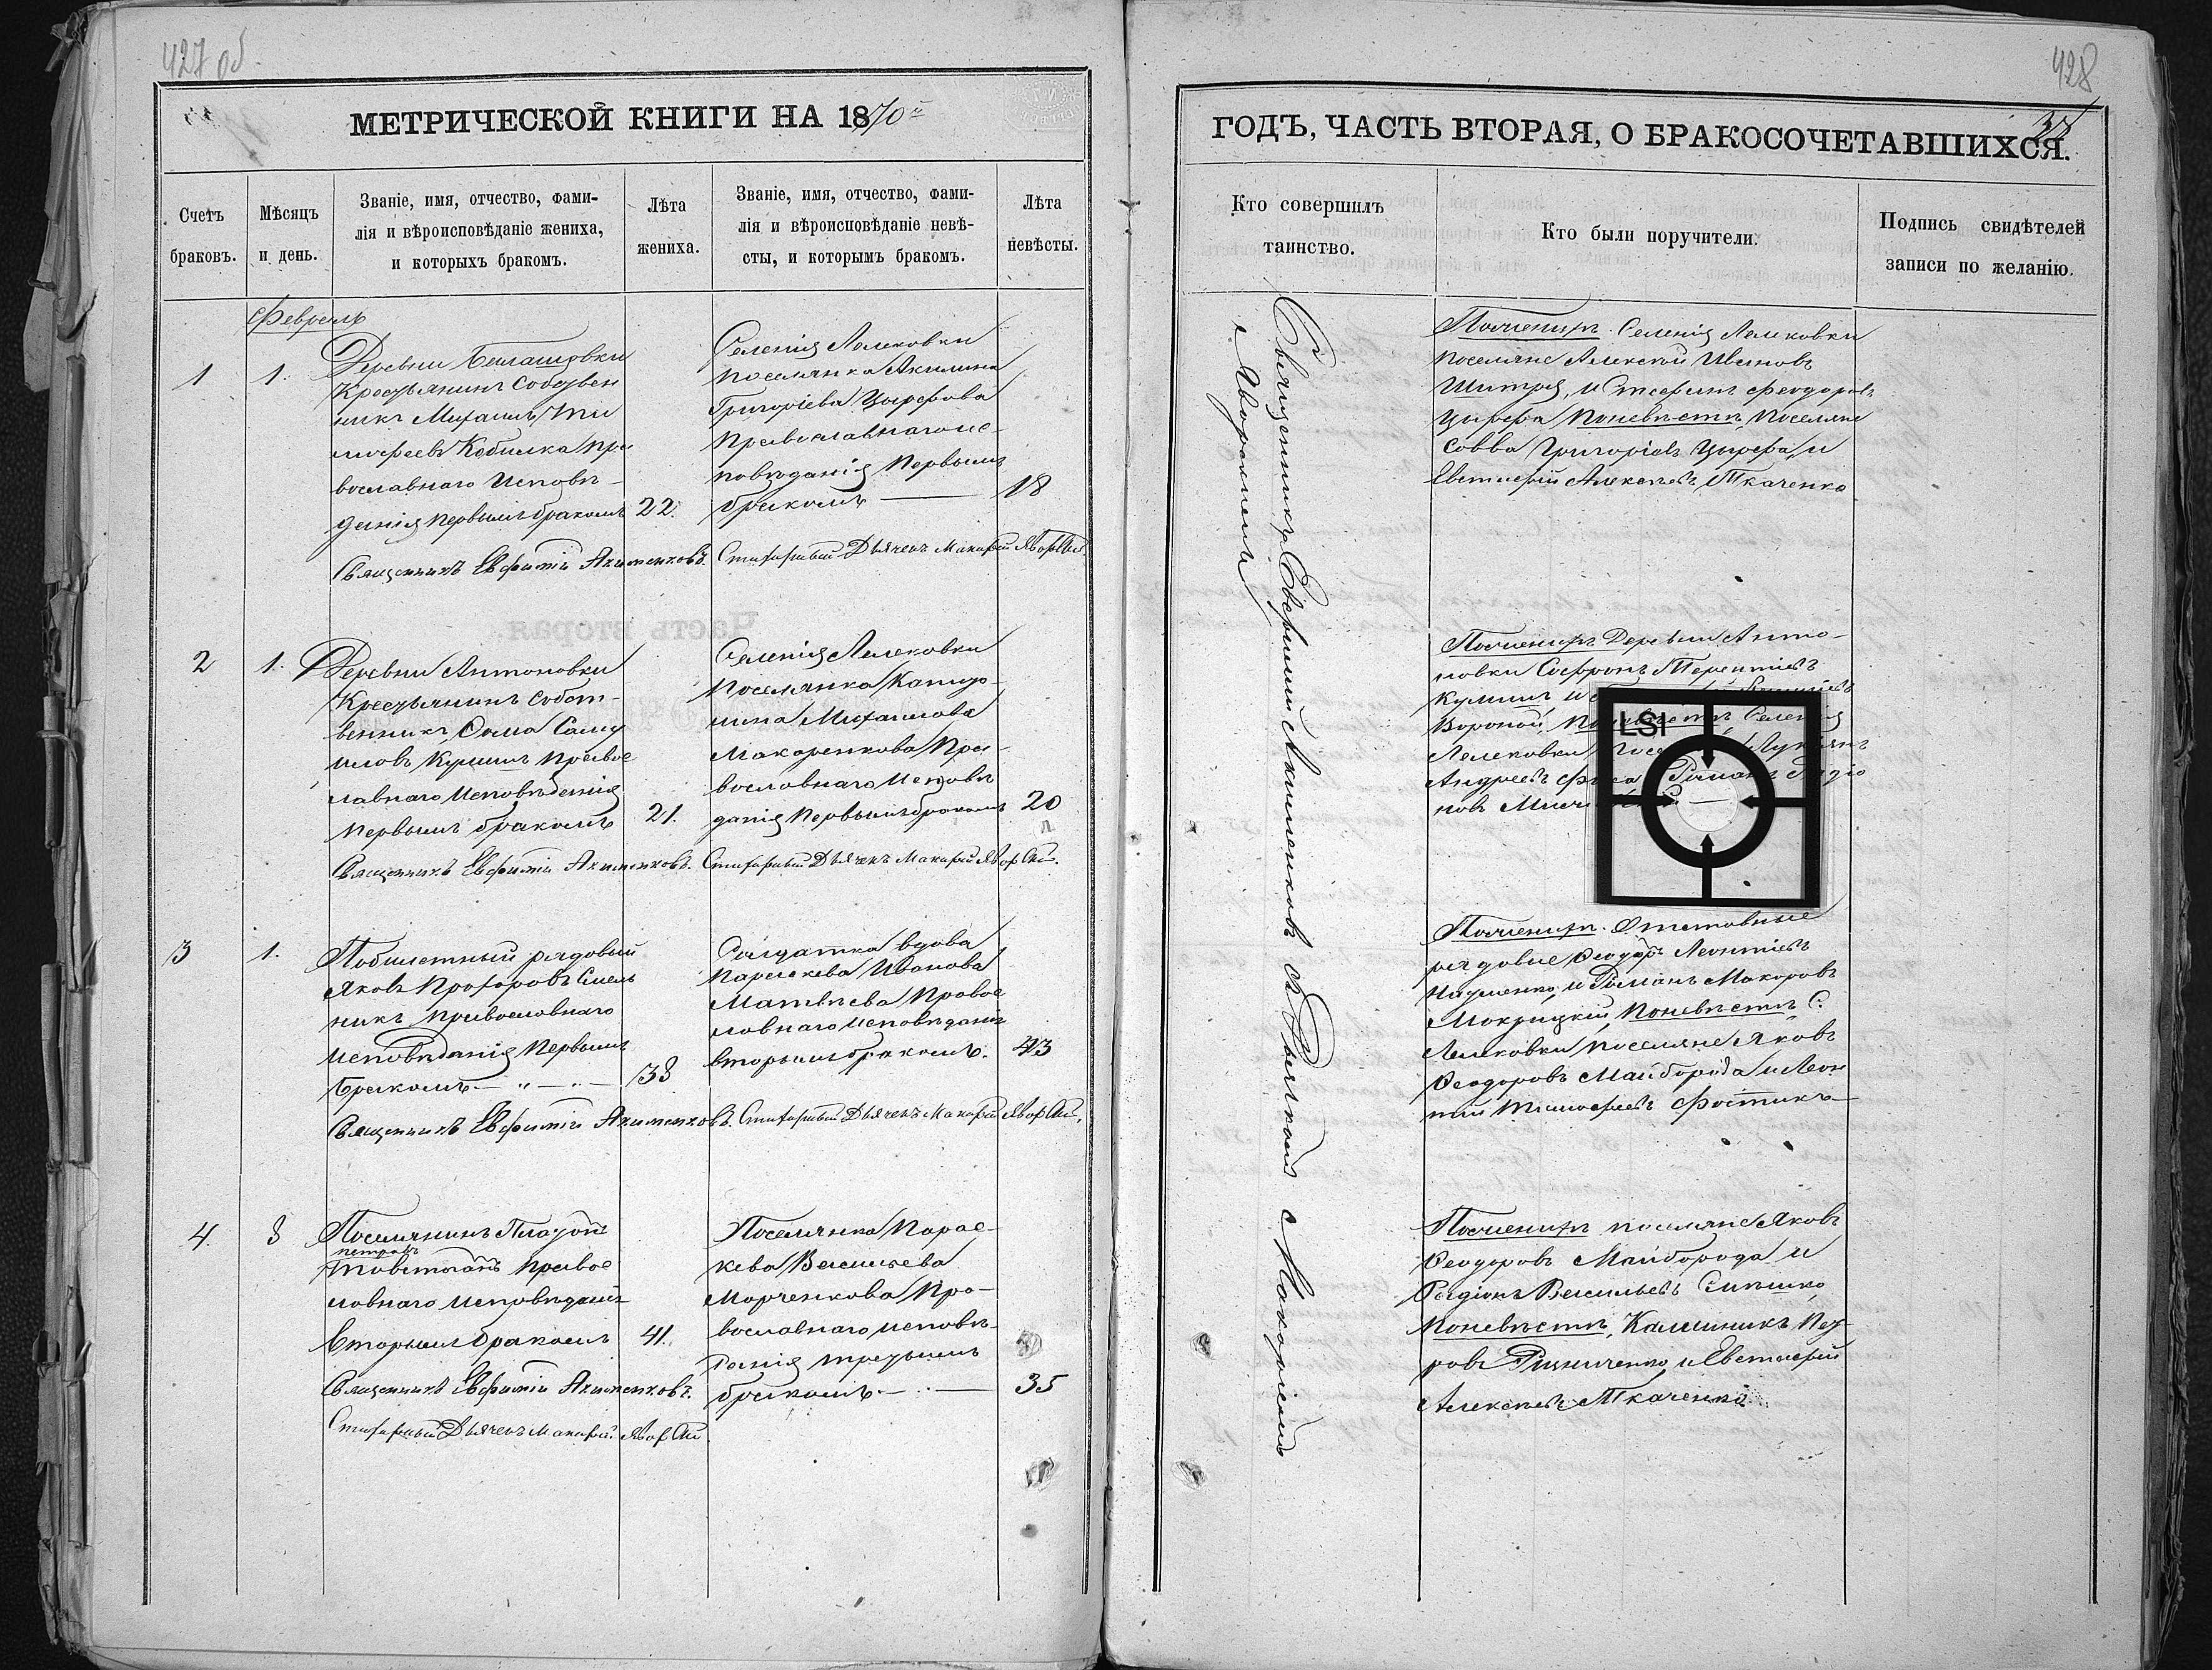 427 об.
МЕТРИЧЕСКОЙ КНИГИ НА 1870й
Счетъ
браковъ.
Мѣсяцъ
и день.
Званіе, имя, отчество, фами-
лія и вѣроисповѣданіе жениха,
и которыхъ бракомъ.
Лѣта
жениха.
Званіе, имя, отчество, фами-
лія и вѣроисповѣданіе невѣ-
сты, и которымъ бракомъ.
Лѣта
невѣсты.
Февраль
1
1.
Деревни
Крестьянинъ Собствен
никъ Михаилъ Ти
мофеевъ Кобилка Пра
вославнаго Исповѣ-
данія первымъ бракомъ
22.
Селенія Лелековки
поселянка Акилина
Григоріева Цырфова
Православнаго ис-
повѣданія Первымъ
бракомъ
18
Священникъ Евфимій Акименковъ. Стихарный Дьячекъ Макарій Яворскій.
2
1.
Деревни Антоновки
Крестьянинъ Собст-
венникъ Сама Саму
иловъ Кушилъ Правос
лавнаго Исповѣданія
Первымъ бракомъ
21.
Селенія Лелековки
Поселянка
Михаилова
Макаренкова Пра-
вославнаго Исповѣ
данія Первымъ бракомъ
20
Священникъ Евфимій Акименковъ. Стихарный Дьячекъ Макарій Яворскій.
3
1.
Побилетный рядовый
Яковъ Прохоровъ Смель
никъ православнаго
Исповѣданія Первымъ
бракомъ
38
Солдатка вдова
Параскева Иванова
Матвѣева Правос
лавнаго Исповѣданія
вторымъ бракомъ.
43
Священникъ Евфимій Акименковъ. Стихарный Дьячекъ Макарій Яворскій.
4.
8
Поселянинъ Платонъ
петровъ
Товстоганъ Правос
лавнаго Исповѣданія
Вторымъ бракомъ
41.
Поселянка Парас-
кева Васильева
Марченкова Пра-
вославнаго исповѣ-
данія третьимъ
бракомъ.
35
Священникъ Евфимій Акименковъ.
Стихарный Дьячекъ Макарій Яворскій.
428
ГОДЪ, ЧАСТЬ ВТОРАЯ, О БРАКОСОЧЕТАВШИХСЯ.
Кто совершилъ
таинство.
Кто были поручители.
Подпись свидѣтелей
записи по желанію.
Священникъ Евфимій Акименковъ съ Дьячкомъ Макаріемъ
Яворскимъ
По женихѣ. Селенія Лелековки
поселяне Алексѣй Ивановъ
Шитря, и Стефанъ Феодоровъ
Цырфа По невѣстѣ, Поселяне
Савва Григоріевъ Цырфа, и
Евтихій Алексѣевъ Ткаченко
По женихѣ Деревни Анто-
новки Софронъ Терентіевъ
Кушилъ и
Вороной, По невѣстѣ Селенія
Лелековки Лукіянъ
Андреевъ Романъ Радіо
новъ
LSI
По женихѣ. Отставные
рядовые Феодоръ Леонтіевъ
и Романъ Макаровъ
Мокрицкій По невѣстѣ С.
Лелековки поселяне Яковъ
Феодоровъ Майборода и Леон
тій Тимофеевъ Фостикъ
По женихѣ поселяне Яковъ
Феодоровъ Майборода и
Родіонъ Васильевъ
По невѣстѣ, Калинникъ Пет-
ровъ Резниченко и Евтихій
Алексѣевъ Ткаченко